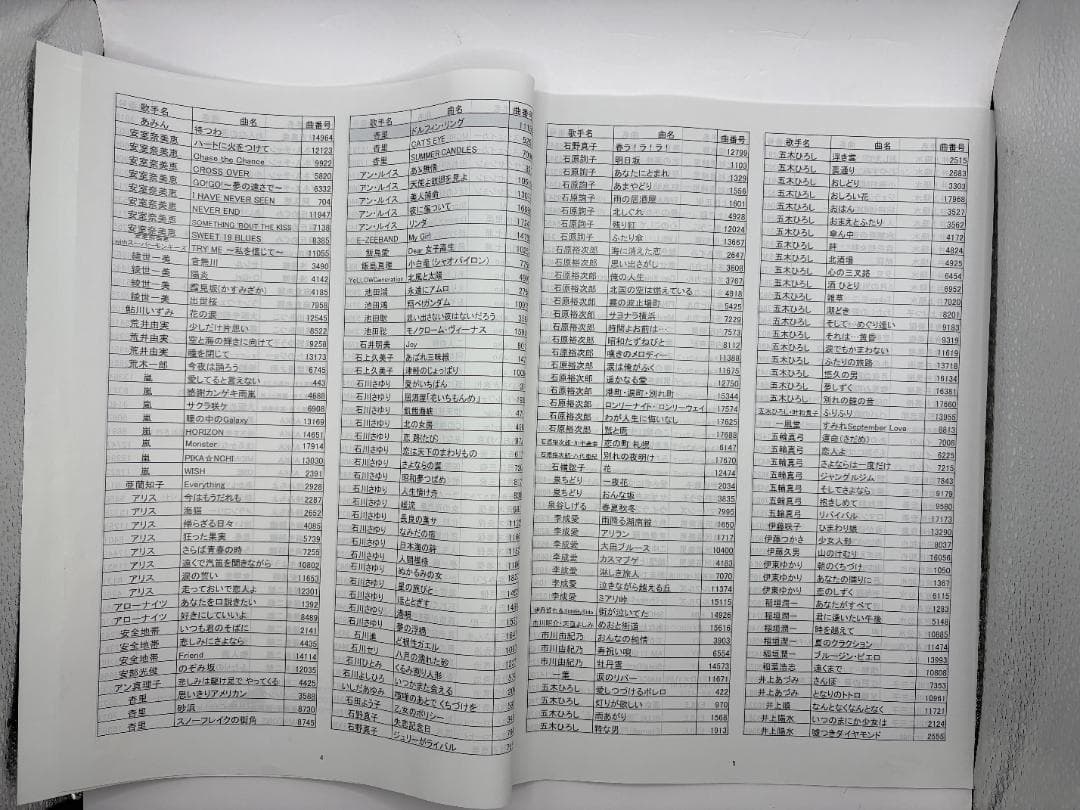 歌手名 曲名 曲番号
あみん 待つわ 14964
安室奈美恵 ハートに火をつけて 12123
安室奈美恵 Chase the Chance 9922
安室奈美恵 CROSS OVER 5820
安室奈美恵 GO!GO!〜夢の速さで〜 6332
安室奈美恵 I HAVE NEVER SEEN 704
安室奈美恵 NEVER END 11947
安室奈美恵 SOMETHING 'BOUT THE KISS 7138
安室奈美恵 SWEET 19 BLUES 8385
withスーパーモンキーズ TRY ME 〜私を信じて〜 11055
綾世一美 音無川 3490
綾世一美 陽炎 4142
綾世一美 霞見坂(かすみざか) 4185
綾世一美 出世桜 7958
鮎川いずみ 花の涙 12545
荒井由実 少しだけ片思い 8522
荒井由実 空と海の輝きに向けて 9258
荒井由実 瞳を閉じて 13173
荒木一郎 今夜は踊ろう 6745
嵐 愛してると言えない 443
嵐 感謝カンゲキ雨嵐 4688
嵐 サクラ咲ケ 6908
嵐 瞳の中のGalaxy 13169
嵐 HORIZON 14651
嵐 Monster 17914
嵐 PIKA☆NCHI 13030
嵐 WISH 2391
亜蘭知子 Everything 2928
アリス 今はもうだれも 2287
アリス 海猫 2652
アリス 帰らざる日々 4085
アリス 狂った果実 5739
アリス さらば青春の時 7255
アリス 遠くで汽笛を聞きながら 10802
アリス 涙の誓い 11653
アリス 走っておいで恋人よ 12301
アローナイツ あなたを口説きたい 1392
アローナイツ 好きにしていいよ 8489
安全地帯 いつも君のそばに 2141
安全地帯 悲しみにさよなら 4435
安全地帯 Friend 14114
安部光俊 のぞみ坂 12035
アン真理子 悲しみは駆け足でやってくる 4425
杏里 思いきりアメリカン 3588
杏里 砂浜 8730
杏里 スノーフレイクの街角 8745
4
歌手名 曲名 曲番号
杏里 ドルフィン・リング
杏里 CAT'S EYE
杏里 SUMMER CANDLES
アン・ルイス あゝ無情
アン・ルイス 天使よ故郷を見よ
アン・ルイス 美人薄命
アン・ルイス 彼に傷ついて
アン・ルイス リンダ
E-ZEEBAND My Girl
飯島愛 Dear 女子高生
飯島真理 小白竜(シャオパイロン)
YeLLOWGeneration 北風と太陽
池田鴻 永遠にアムロ
池田鴻 翔べガンダム
池田聡 思い出さない夜はないだろう
池田聡 モノクローム・ヴィーナス
石井明美 Joy
石上久美子 あばれ三味線
石上久美子 津軽のじょっぱり
石川さゆり 愛がいちばん
石川さゆり 居酒屋「老いちもんめ」
石川さゆり 飢餓海峡
石川さゆり 北の女房
石川さゆり 恋路(たび)
石川さゆり 恋は天下のまわりもの
石川さゆり さよならの翼
石川さゆり 昭和夢つばめ
石川さゆり 人生情け舟
石川さゆり
石川さゆり 長良の萬サ
石川さゆり なみだの宿
石川さゆり 日本海の詩
石川さゆり 人間模様
石川さゆり ぬかるみの女
石川さゆり 星の旅びと
石川さゆり ほとどぎす
石川さゆり
石川さゆり 夢の浮橋
石川進 ど根性ガエル
石川セリ 八月の濡れた砂
石川ひとみ くるみ割り人形
石川よしひろ いつかまた会える
いしだあゆみ 喧嘩のあとでくちづけを
石田よう子 乙女のポリシー
石野真子 失恋記念日
石野真子 ジュリーがライバル
歌手名 曲名 曲番号
石野真子 春ラ!ラ!ラ! 12799
石原詢子 明日坂 1103
石原詢子 あなたにとまれ 1329
石原詢子 あまやどり 1556
石原詢子 雨の居酒屋 1601
石原詢子 北しぐれ 4928
石原詢子 残り紅 12024
石原詢子 ふたり傘 13667
石原裕次郎 海に消えた恋 2647
石原裕次郎 思い出さがし 3608
石原裕次郎 俺の人生 3767
石原裕次郎 北国の空は燃えている 4918
石原裕次郎 霧の波止場町 5425
石原裕次郎 サヨナラ横浜 7229
石原裕次郎 時間よお前は… 7573
石原裕次郎 昭和たずねびと 8112
石原裕次郎 嘆きのメロディー 11388
石原裕次郎 涙は俺がふく 11675
石原裕次郎 遥かなる愛 12750
石原裕次郎 港町・涙町・別れ町 15344
石原裕次郎 ロンリーナイト・ロンリーウェイ 17574
石原裕次郎 わが人生に悔いなし 17625
石原裕次郎 鷲と鷹 17688
恋の町札幌 6147
石原裕次郎・八代亜紀 別れの夜明け 17670
石橋聡子 花 12474
泉ちどり 一夜花 2034
泉ちどり おんな坂 3835
泉谷しげる 春夏秋冬 7995
李成愛 雨降る湖南線 1650
李成愛 アリラン 1717
李成愛 大田ブルース 10400
李成愛 カスマプゲ 4183
李成愛 淋しき旅人 7070
李成愛 泣きながら越える丘 11374
李成愛 ミアリ峠 15115
街が泣いてた 14926
市川昭介・天童よしみ めおと街道 15616
市川由紀乃 おんなの純情 3903
市川由紀乃 寿祝い唄 6554
市川由紀乃 牡丹雪 14573
一葉 涙のリバー 11671
五木ひろし 愛しつづけるボレロ 422
五木ひろし 灯りが欲しい 970
五木ひろし 雨あがり 1568
五木ひろし 粋な男 1913
1
歌手名 曲名 曲番号
五木ひろし 浮き雲 2515
五木ひろし 裏通り 2683
五木ひろし おしどり 3303
五木ひろし おしろい花 17968
五木ひろし おはん 3527
五木ひろし おまえとふたり 3562
五木ひろし 傘ん中 4172
五木ひろし 絆 4824
五木ひろし 北酒場 4925
五木ひろし 心の三叉路 6454
五木ひろし 酒ひとり 6952
五木ひろし 雑草 7020
五木ひろし 潮どき 8201
五木ひろし そして…めぐり逢い 9183
五木ひろし それは…黄昏 9319
五木ひろし 涙でもかまわない 11619
五木ひろし ふたりの旅路 13718
五木ひろし 悠久の男 16134
五木ひろし 夢しずく 16381
五木ひろし 別れの鐘の音 17660
五木ひろし・叶和貴子 ふりふり 13955
一風堂 すみれSeptember Love 8813
五輪真弓 運命(さだめ) 7006
五輪真弓 恋人よ 6225
五輪真弓 さよならは一度だけ 7215
五輪真弓 ジャングルジム 7843
五輪真弓 そしてさよなら 9179
五輪真弓 抱きしめて 9580
五輪真弓 リバイバル 17173
伊藤咲子 ひまわり娘 13290
伊藤つかさ 少女人形 8037
伊藤久男 山のけむり 16056
伊東ゆかり 朝のくちづけ 1050
伊東ゆかり あなたの隣りに 1367
伊東ゆかり 恋のしずく 6115
稲垣潤一 あなたがすべて 1283
稲垣潤一 君に逢いたい午後 5148
稲垣潤一 時を越えて 10885
稲垣潤一 夏のクラクション 11474
稲垣潤一 ブルージン・ピエロ 13993
稲葉浩志 遠くまで 10808
井上あずみ さんぽ 7353
井上あずみ となりのトトロ 10981
井上順 なんとなくなんとなく 11721
井上陽水 いつのまにか少女は 2124
井上陽水 嘘つきダイヤモンド 2555